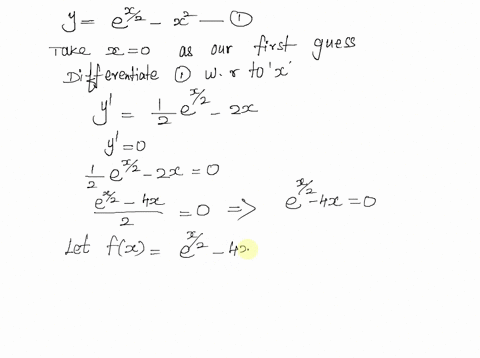 y = e^{x/2} - x² — ①
Take x=0 as our first guess
Differentiate ① w.r to 'x'
y' = 1/2 e^{x/2} - 2x
y' = 0
1/2 e^{x/2} - 2x = 0
(e^{x/2} - 4x)/2 = 0 => e^{x/2} - 4x = 0
Let f(x) = e^{x/2} - 4x